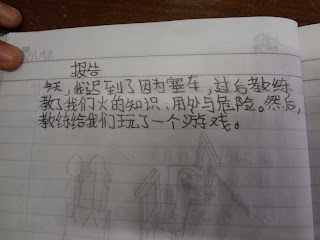 报告
今天，我迟到了因为塞车，过后教练
教了我们火的知识、用处与危险。然后，
教练给我们玩了一个游戏。